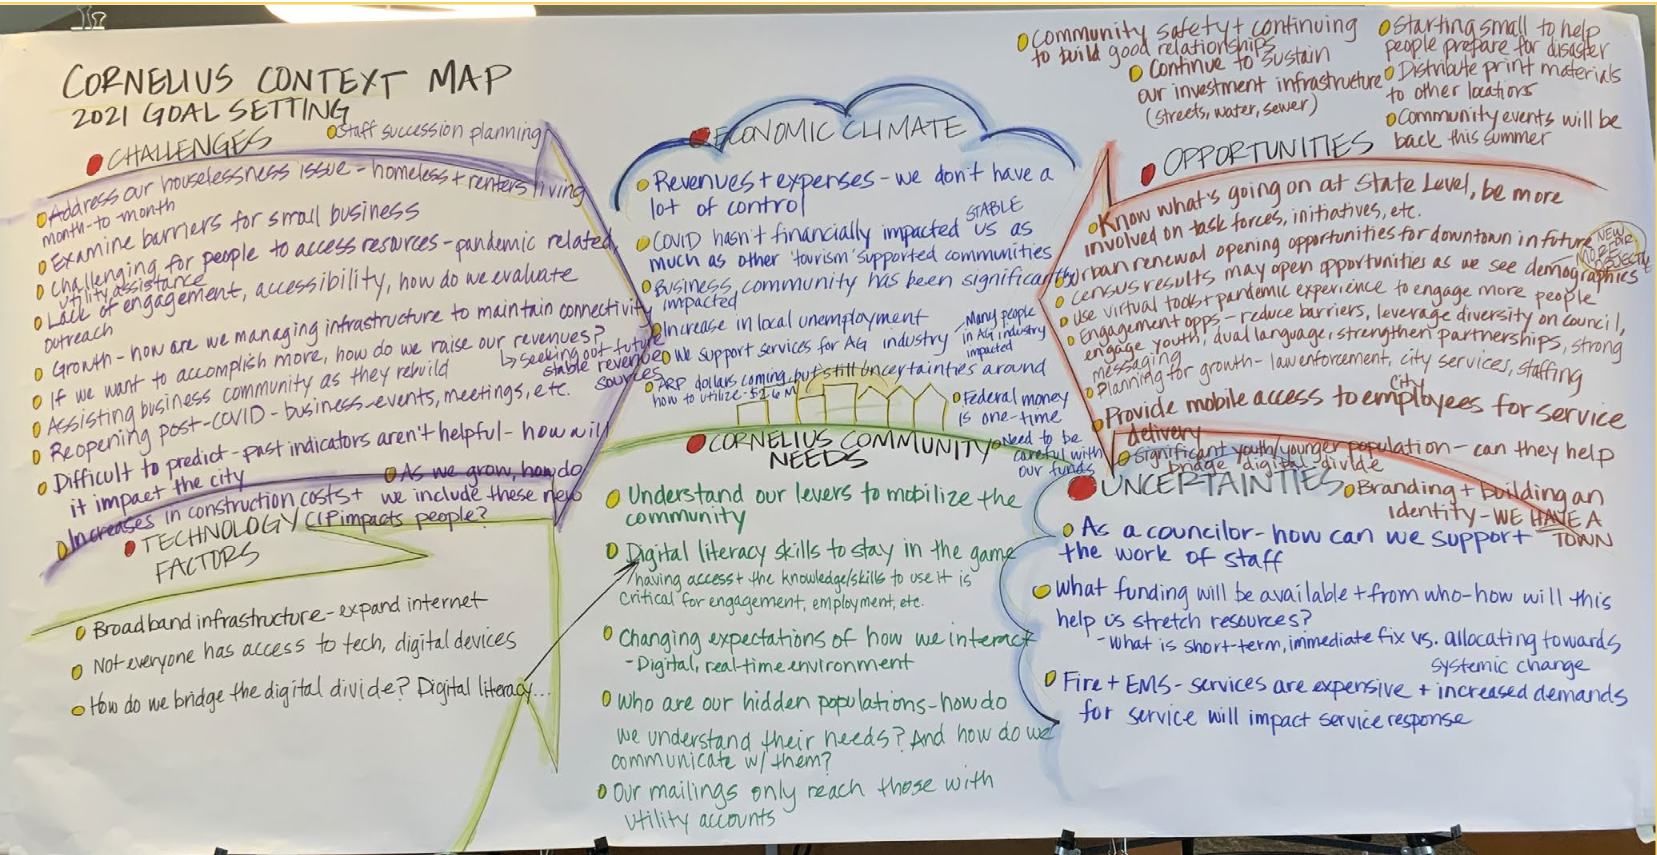 CORNELIUS CONTEXT MAP
2021 GOAL SETTING
CHALLENGES
Staff succession planning
Address our houselessness issue - homeless + renters living
month-to month
Examine barriers for small business
Challenging for people to access resources - pandemic related,
utility assistance
Lack of engagement, accessibility, how do we evaluate
outreach
Growth - how are we managing infrastructure to maintain connectivity
If we want to accomplish more, how do we raise our revenues?
↳ Seeking out future
stable revenue
sources
Assisting business community as they rebuild
Reopening post-COVID - business-events, meetings, etc.
Difficult to predict - past indicators aren't helpful - how will
it impact the city
As we grow, how do
we include these new
people?
Increases in construction costs +
CIP impacts
TECHNOLOGY
FACTORS
Broadband infrastructure - expand internet
Not everyone has access to tech, digital devices
How do we bridge the digital divide? Digital literacy...
ECONOMIC CLIMATE
Revenues + expenses - we don't have a
lot of control
STABLE
COVID hasn't financially impacted us as
much as other 'tourism' supported communities
Business community has been significantly
impacted
Increase in local unemployment
We support services for AG industry
- Many people
in AG industry
impacted
ARP dollars coming, but still uncertainties around
how to utilize - $2.6 M
Federal money
is one-time
Need to be
careful with
our funds
CORNELIUS COMMUNITY
NEEDS
Understand our levers to mobilize the
community
Digital literacy skills to stay in the game
having access + the knowledge/skills to use it is
critical for engagement, employment, etc.
Changing expectations of how we interact
- Digital, real-time environment
Who are our hidden populations - how do
we understand their needs? And how do we
communicate w/ them?
Our mailings only reach those with
utility accounts
Community safety + continuing
to build good relationships
Continue to sustain
our investment infrastructure
(streets, water, sewer)
Starting small to help
people prepare for disaster
Distribute print materials
to other locations
Community events will be
back this summer
OPPORTUNITIES
Know what's going on at State Level, be more
involved on task forces, initiatives, etc.
Urban renewal opening opportunities for downtown in future
NEW
Census results may open opportunities as we see demographics
Use virtual tools + pandemic experience to engage more people
Engagement opps - reduce barriers, leverage diversity on council,
engage youth, dual language, strengthen partnerships, strong
messaging
Planning for growth - law enforcement, city services, staffing
Provide mobile access to city employees for service
delivery
Significant youth/younger population - can they help
bridge digital divide
Branding + building an
identity - WE HAVE A
TOWN
UNCERTAINTIES
As a councilor - how can we support
the work of staff
What funding will be available + from who - how will this
help us stretch resources?
- What is short-term, immediate fix vs. allocating towards
systemic change
Fire + EMS - services are expensive + increased demands
for service will impact service response